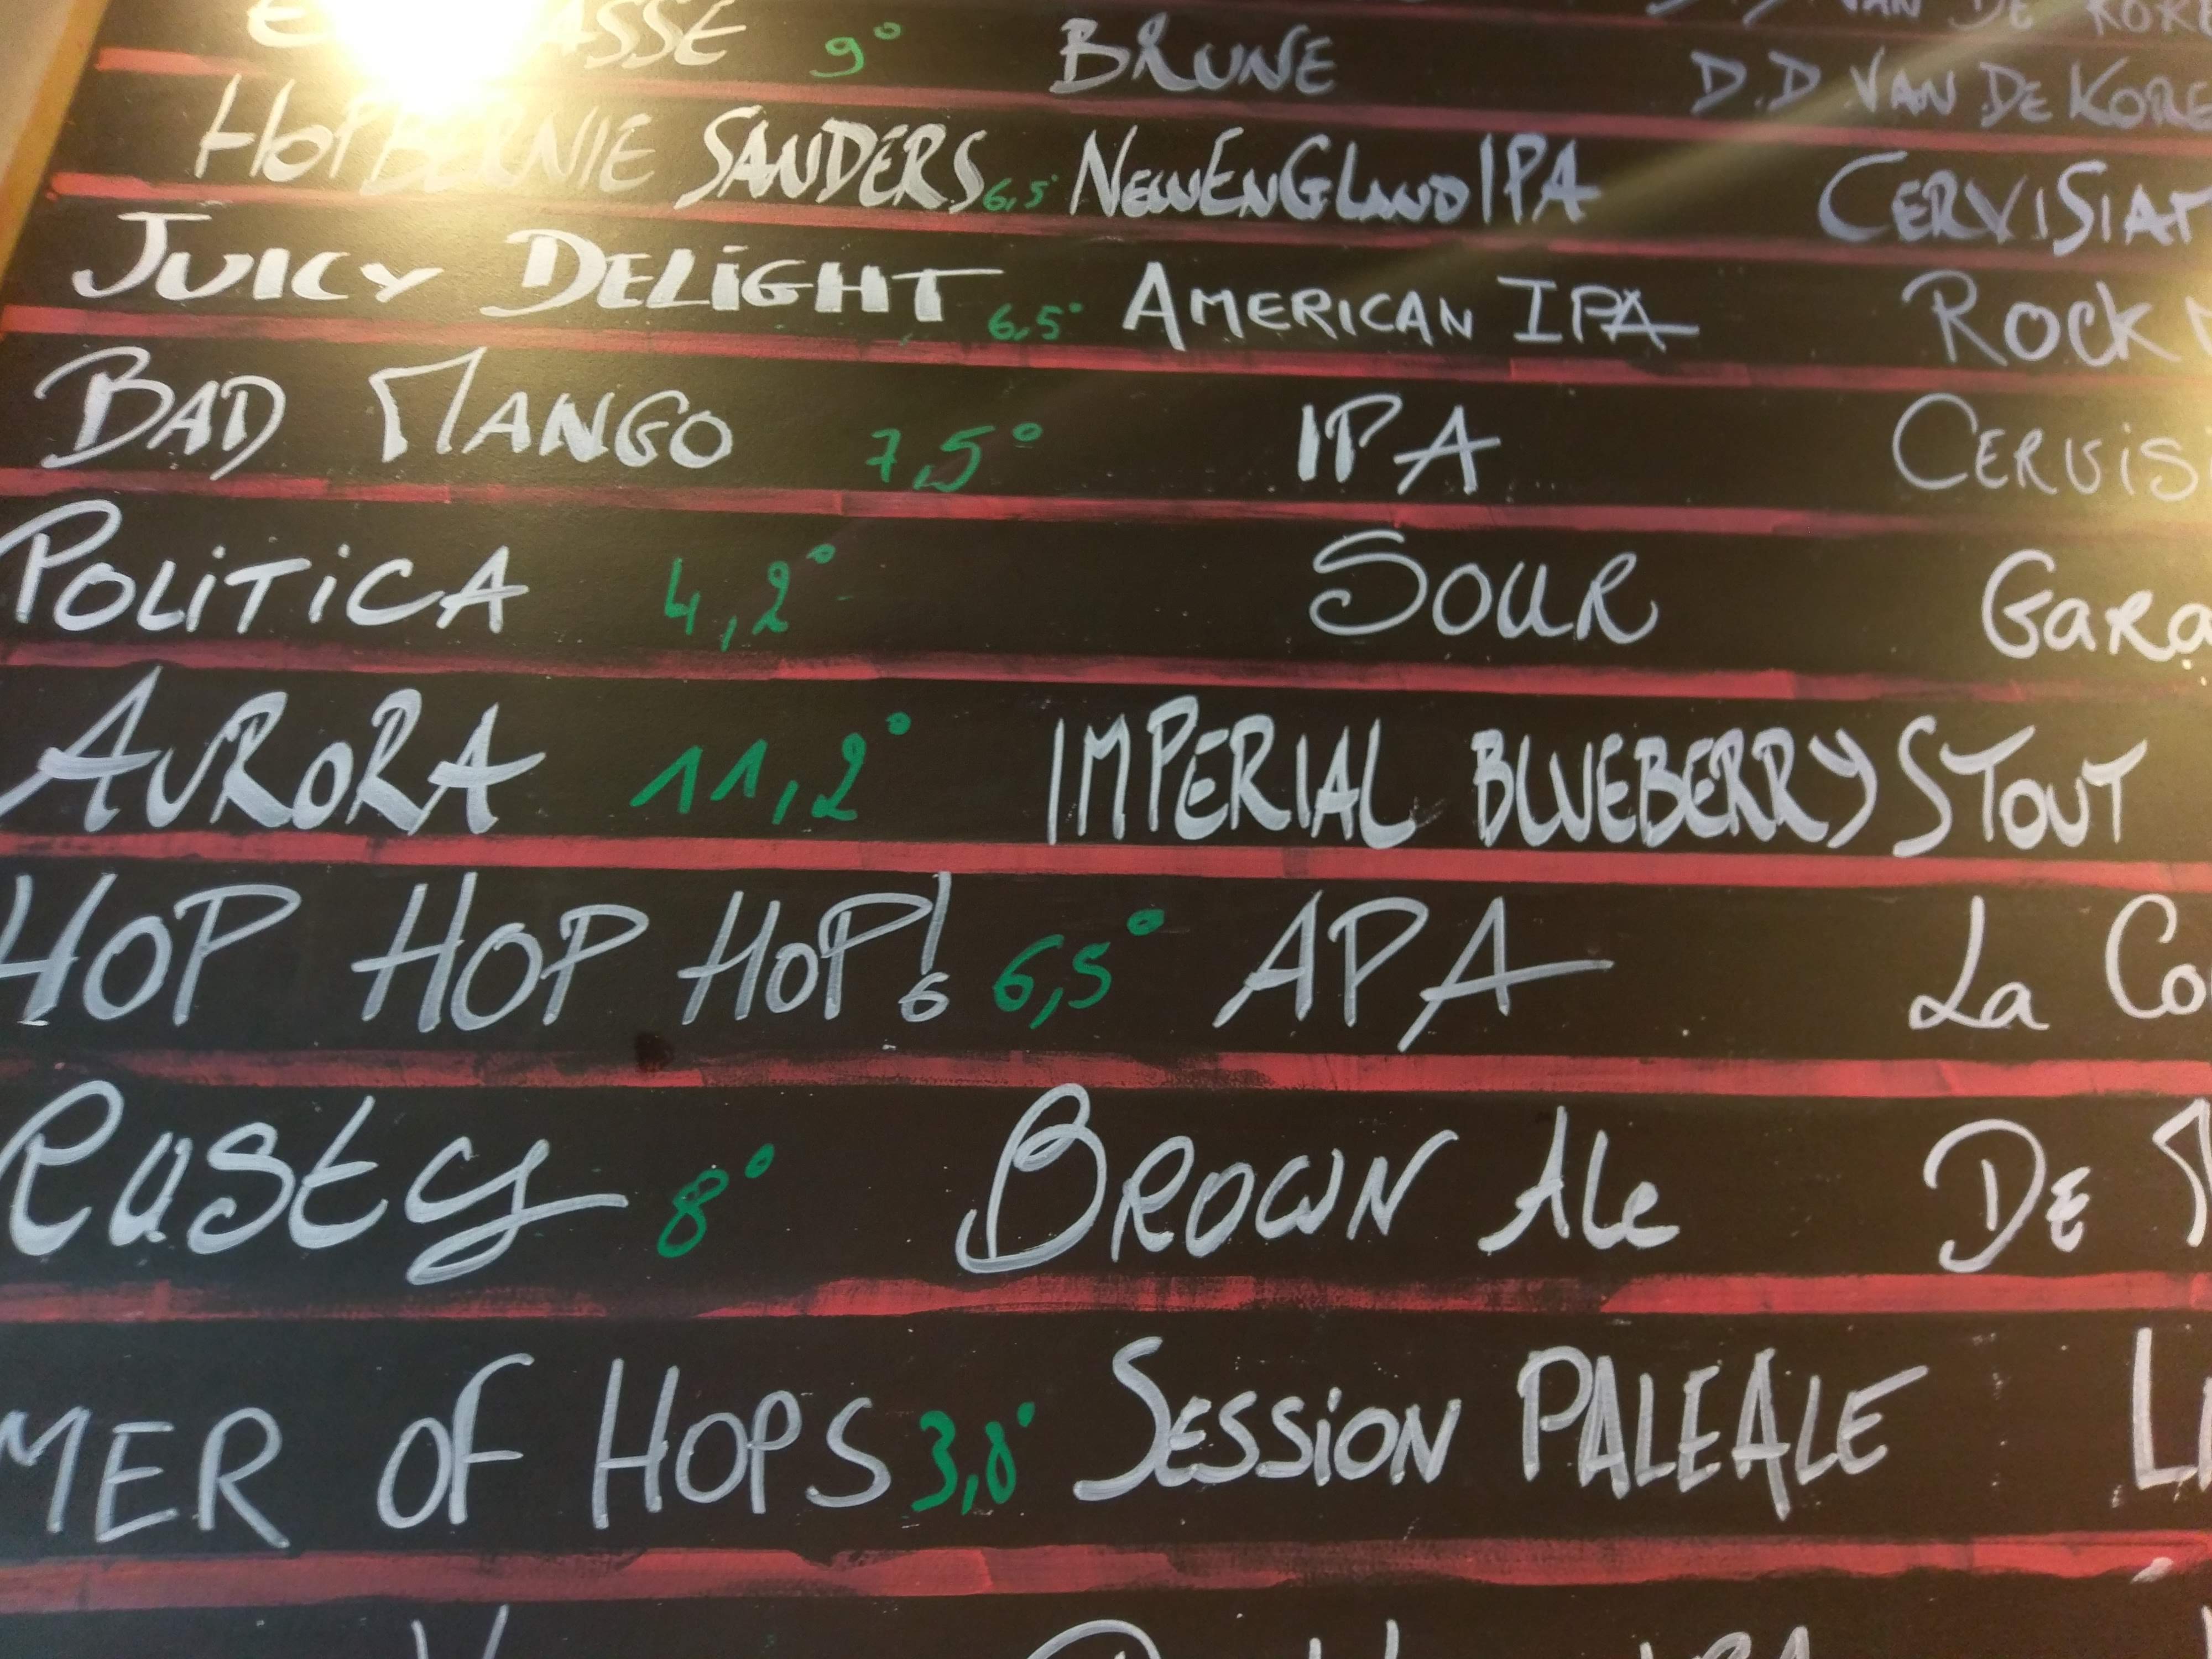 9° BRUNE D.D VAN DE KORE
HOPBERNIE SANDERS 6,5° NEWENGLAND IPA CERVISIAT
JUICY DELIGHT 6,5° AMERICAN IPA ROCK
BAD MANGO 7,5° IPA CERVIS
POLITICA 4,2° SOUR GARA
AURORA 11,2° IMPERIAL BLUEBERRY STOUT
HOP HOP HOP! 6 6,5° APA La Co
Rusty 8° BROWN Ale DE
MER OF HOPS 3,8° SESSION PALE ALE